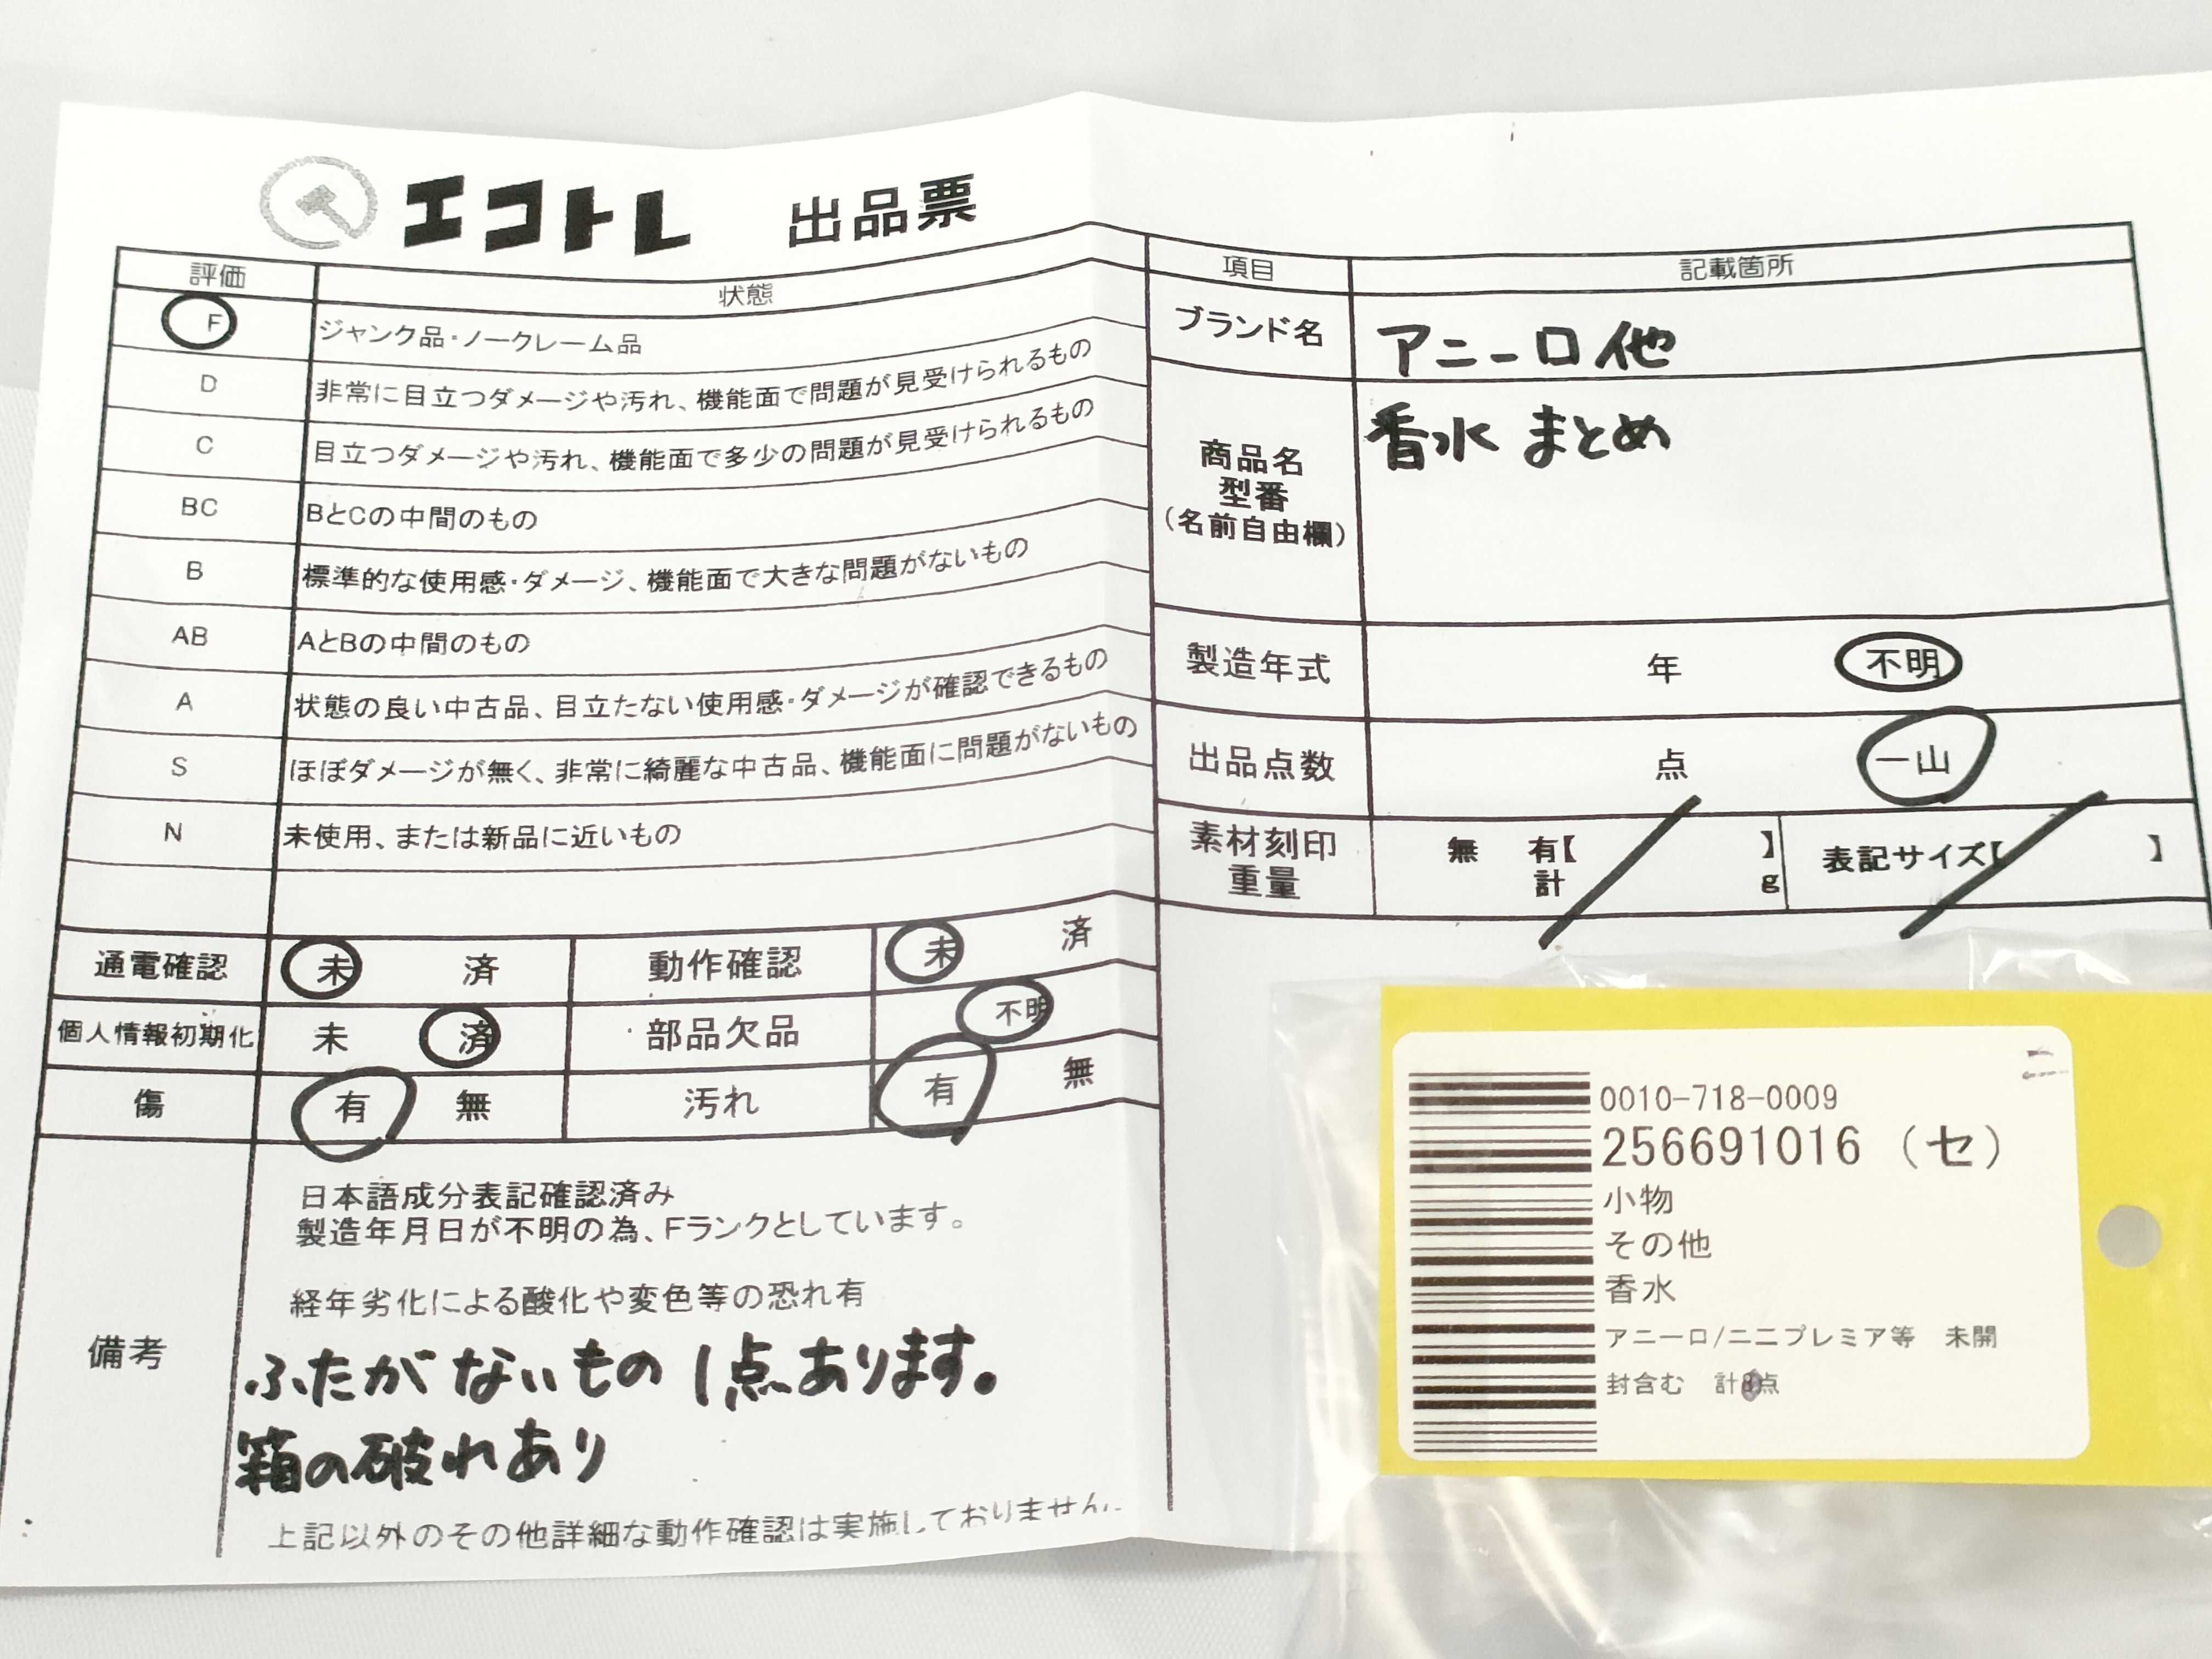 エコトレ 出品票
評価 状態
F ジャンク品・ノークレーム品
D 非常に目立つダメージや汚れ、機能面で問題が見受けられるもの
C 目立つダメージや汚れ、機能面で多少の問題が見受けられるもの
BC BとCの中間のもの
B 標準的な使用感・ダメージ、機能面で大きな問題がないもの
AB AとBの中間のもの
A 状態の良い中古品、目立たない使用感・ダメージが確認できるもの
S ほぼダメージが無く、非常に綺麗な中古品、機能面に問題がないもの
N 未使用、または新品に近いもの
通電確認 未 済 動作確認 未 済
個人情報初期化 未 済 部品欠品 不明
傷 有 無 汚れ 有 無
備考
日本語成分表記確認済み
製造年月日が不明の為、Fランクとしています。
経年劣化による酸化や変色等の恐れ有
ふたがないもの1点あります。
箱の破れあり
上記以外のその他詳細な動作確認は実施しておりません。
項目 記載箇所
ブランド名 アニーロ他
商品名
型番
（名前自由欄）
香水 まとめ
製造年式 年 不明
出品点数 点 一山
素材刻印 無 有【 】 表記サイズ【 】
重量 計 g
0010-718-0009
256691016（セ）
小物
その他
香水
アニーロ/ニニプレミア等 未開
封含む 計点